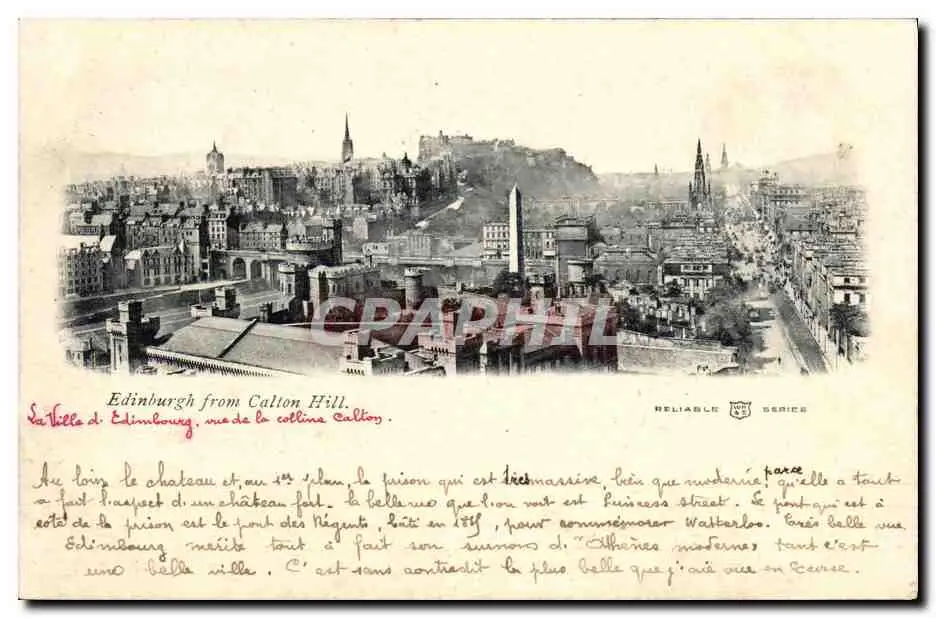 CPAPHIL
Edinburgh from Calton Hill.
RELIABLE WR & S SERIES
La Ville d'Edimbourg, vue de la colline Calton.
Au loin le chateau et, au 1er plan, la prison qui est très massive, bien que moderne, parce qu'elle a tout
a fait l'aspect d'un château fort. la belle rue que l'on voit est Princess street. Le pont qui est à
coté de la prison est le pont des Régents, bâti en 1815, pour commémorer Watterloo. Très belle vue.
Edimbourg mérite tout à fait son surnom d'"Athènes moderne, tant c'est
une belle ville. C'est sans contredit la plus belle que j'aie vue en